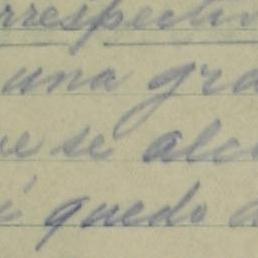 rrespectiv
una gra
ue se alc
í quedo a